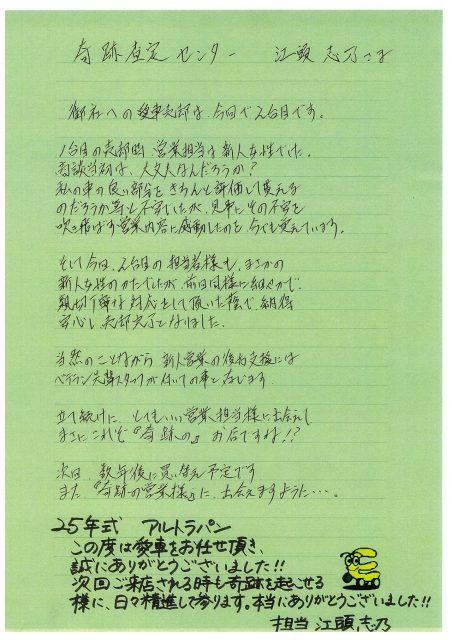 奇跡査定センター 江頭志乃さま
御社への愛車売却は、今回で2台目です。
1台目の売却時、営業担当は新人女性でした。
商談当初は、大丈夫なんだろうか?
私の車の良い部分をきちんと評価して貰える
のだろうか等と不安でしたが、見事にその不安を
吹き飛ばす営業内容に感動したのを今でも覚えています。
そして今回、2台目の担当者様も、まさかの
新人女性のかたでしたが、前回同様に細やかで、
親切丁寧な対応をして頂いた様で、納得
安心し、売却完了となりました。
当然のことながら 新人営業の後方支援には
ベテラン先輩スタッフが付いての事と存じます。
立て続けに、とてもいい営業担当様に出会えて
まさにこれぞ『奇跡の』お店ですね!?
次回、数年後に買い替え予定です
また、『奇跡の営業様』に、出会えますように・・・。
25年式 アルトラパン
この度は愛車をお任せ頂き、
誠にありがとうございました!!
次回ご来店される時も奇跡を起こせる
様に、日々精進して参ります。本当にありがとうございました!!
担当 江頭 志乃